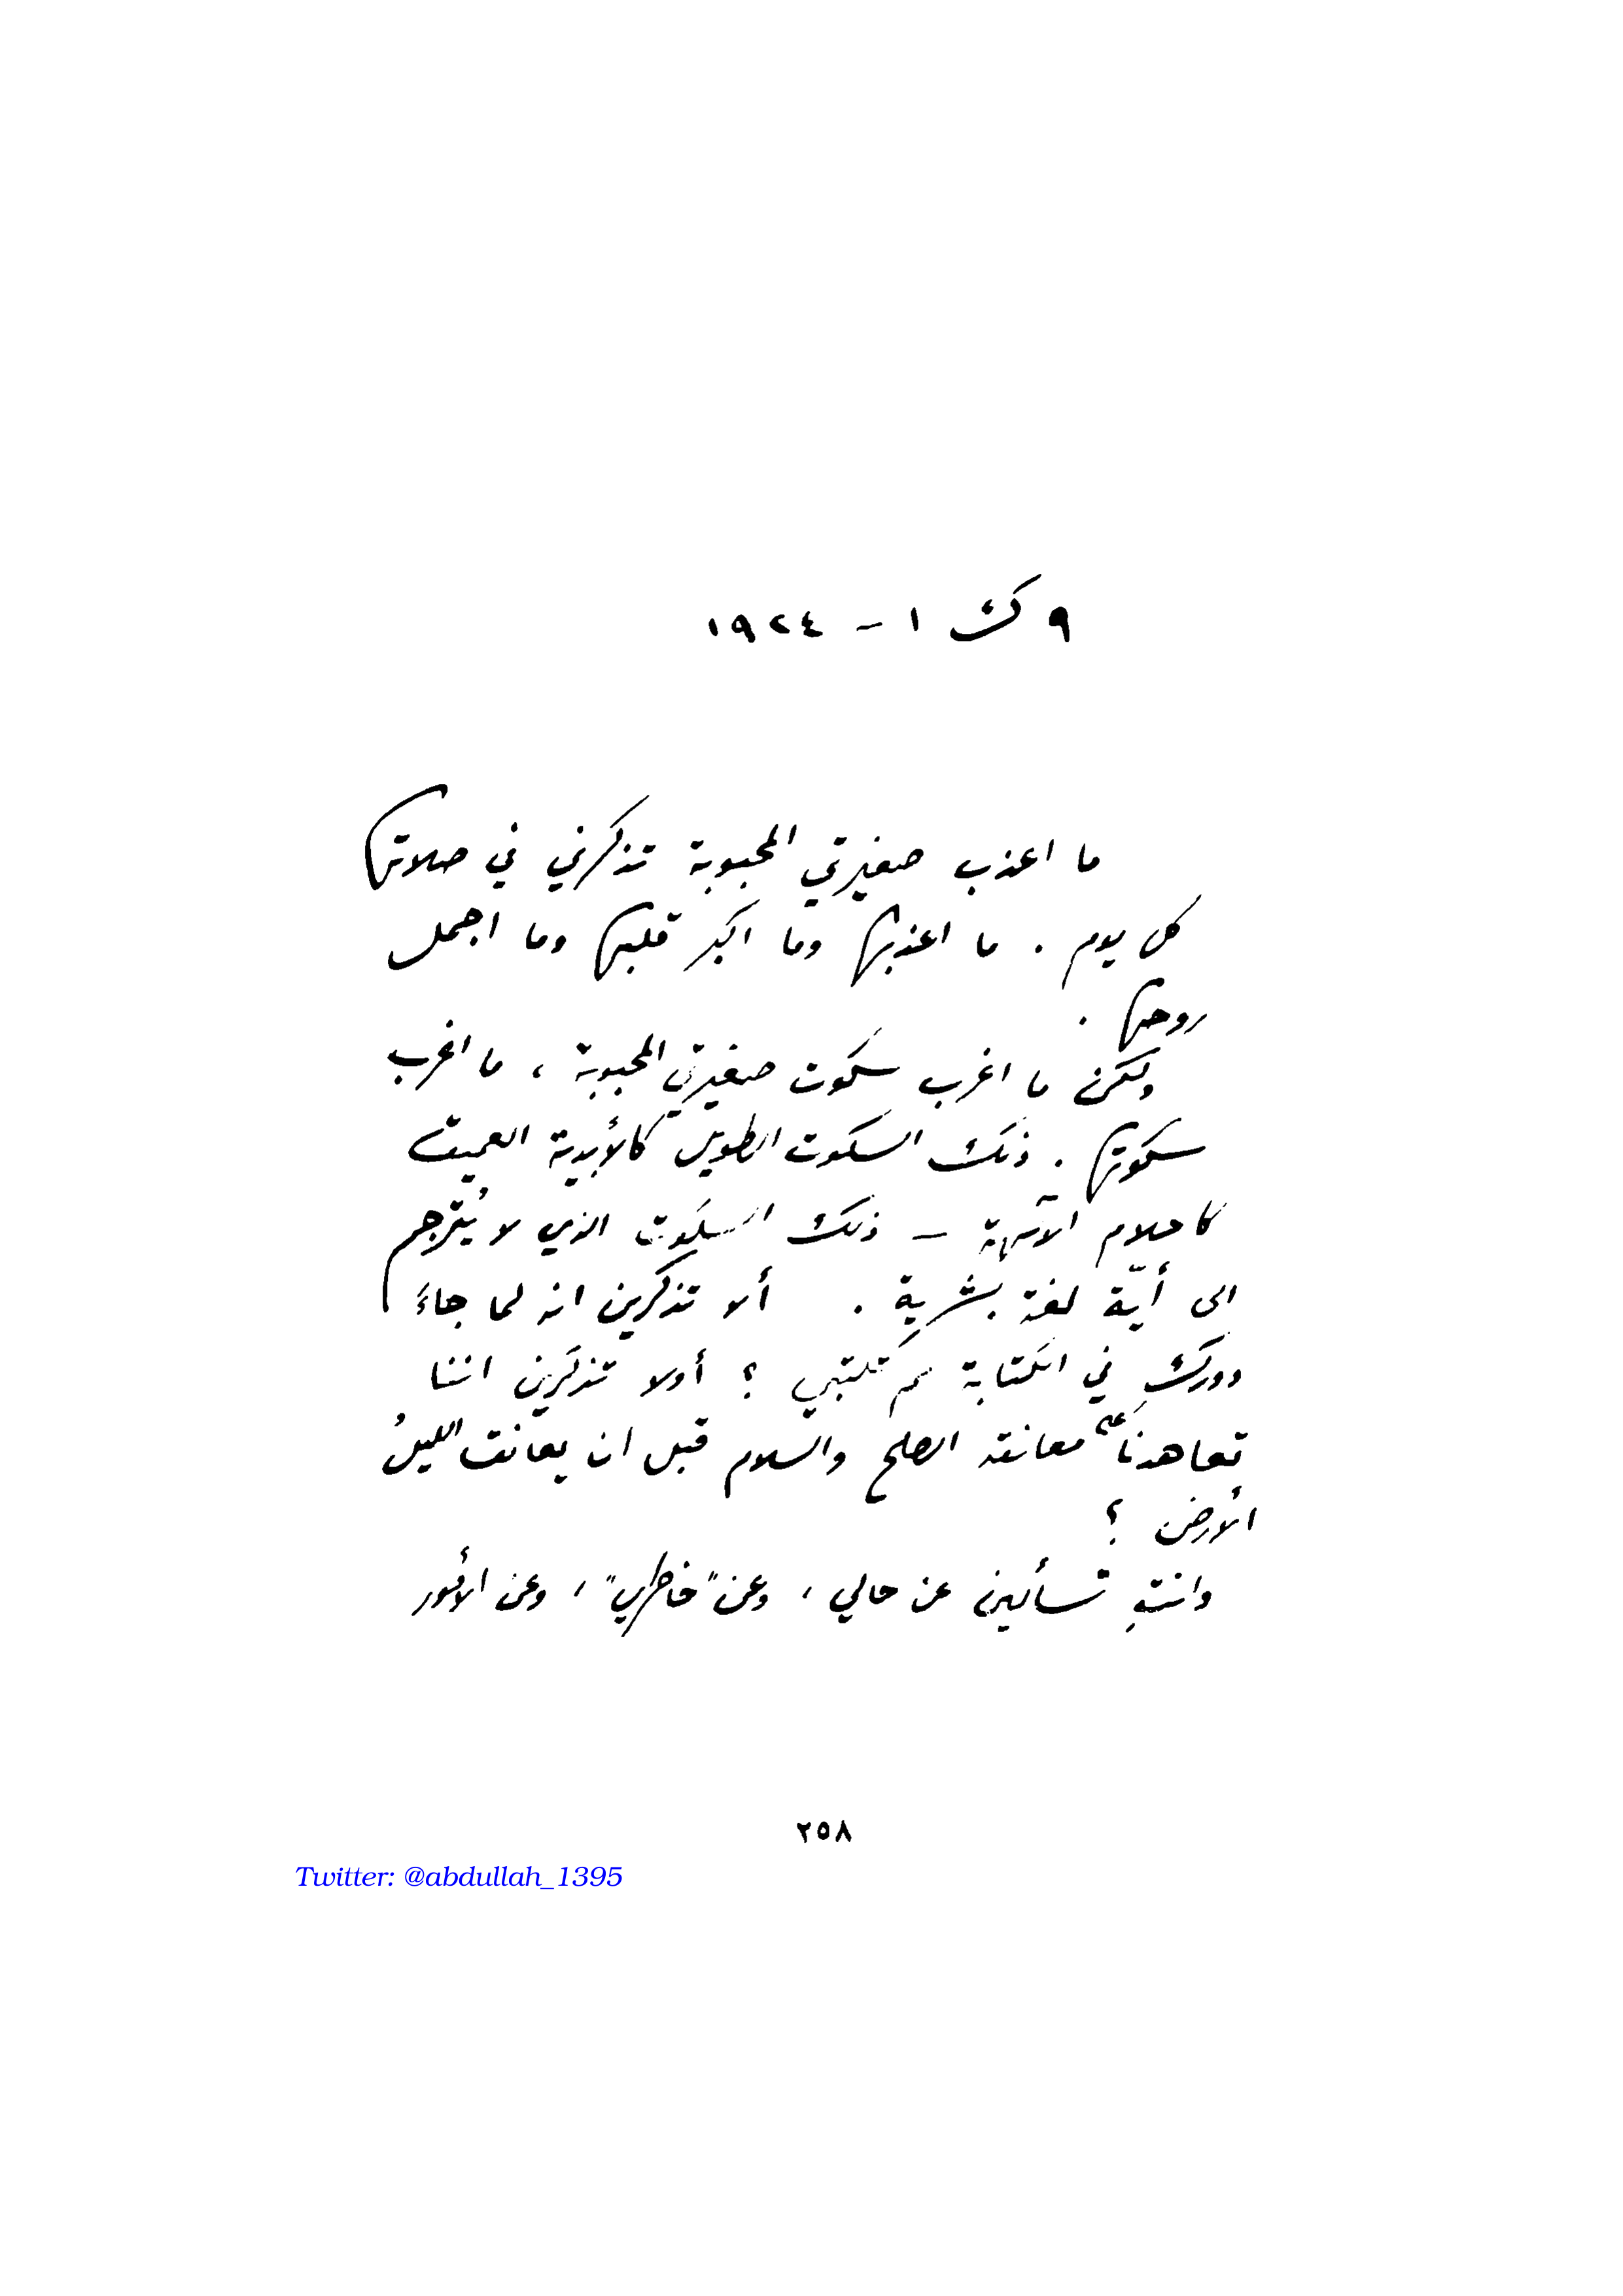 ٩ ك ١ - ١٩٢٤
ما اعذب صغيرتي المحبوبة تذكرني في صلاتها
كل يوم . ما اعذبها وما اكبر قلبها وما اجمل
روحها .
ولكن ما اغرب سكوت صغيرتي المحبوبة ، ما اغرب
سكوتها . ذلك السكوت الطويل كالأبدية العميق
كاحلام الآلهة – ذلك السكوت الذي لا يُترجم
الى أيّة لغة بشرية . ألا تذكرين انه لما جاءَ
دورك في الكتابة لم تكتبي ؟ أولا تذكرين اننا
تعاهدنا على معانقة الصلح والسلام قبل ان يعانق الليلُ
الأرض ؟
وانتِ تسألين عن حالي ، وعن "خاطري" ، وعن الأمور
٢٥٨
Twitter: @abdullah_1395